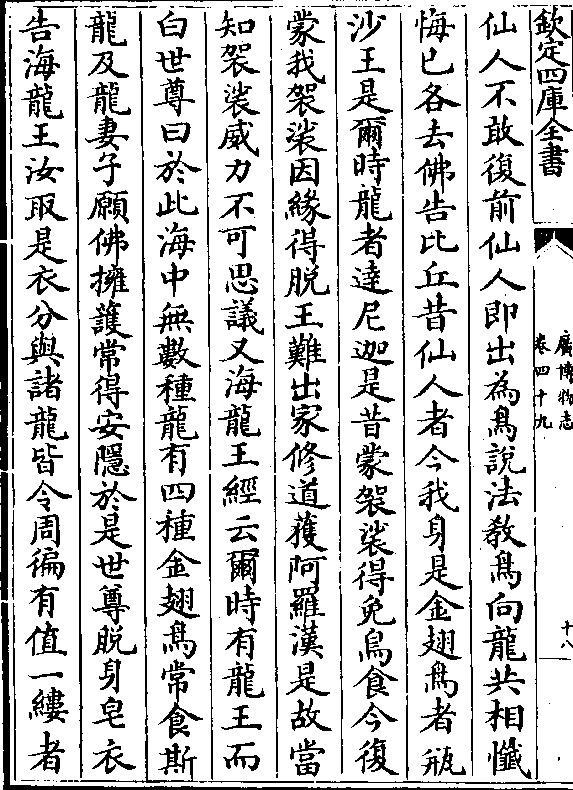 欽定四庫全書
廣博物志
卷四十九
十八
仙人不敢復前仙人即出為鳥說法教鳥向龍共相懺
悔已各去佛告比丘昔仙人者今我身是金翅鳥者瓶
沙王是爾時龍者達尼迦是昔蒙袈裟得免鳥食今復
蒙我袈裟因緣得脫王難出家修道獲阿羅漢是故當
知袈裟威力不可思議又海龍王經云爾時有龍王而
白世尊曰於此海中無數種龍有四種金翅鳥常食斯
龍及龍妻子願佛擁護常得安隱於是世尊脫身皂衣
告海龍王汝取是衣分與諸龍皆令周徧有值一縷者